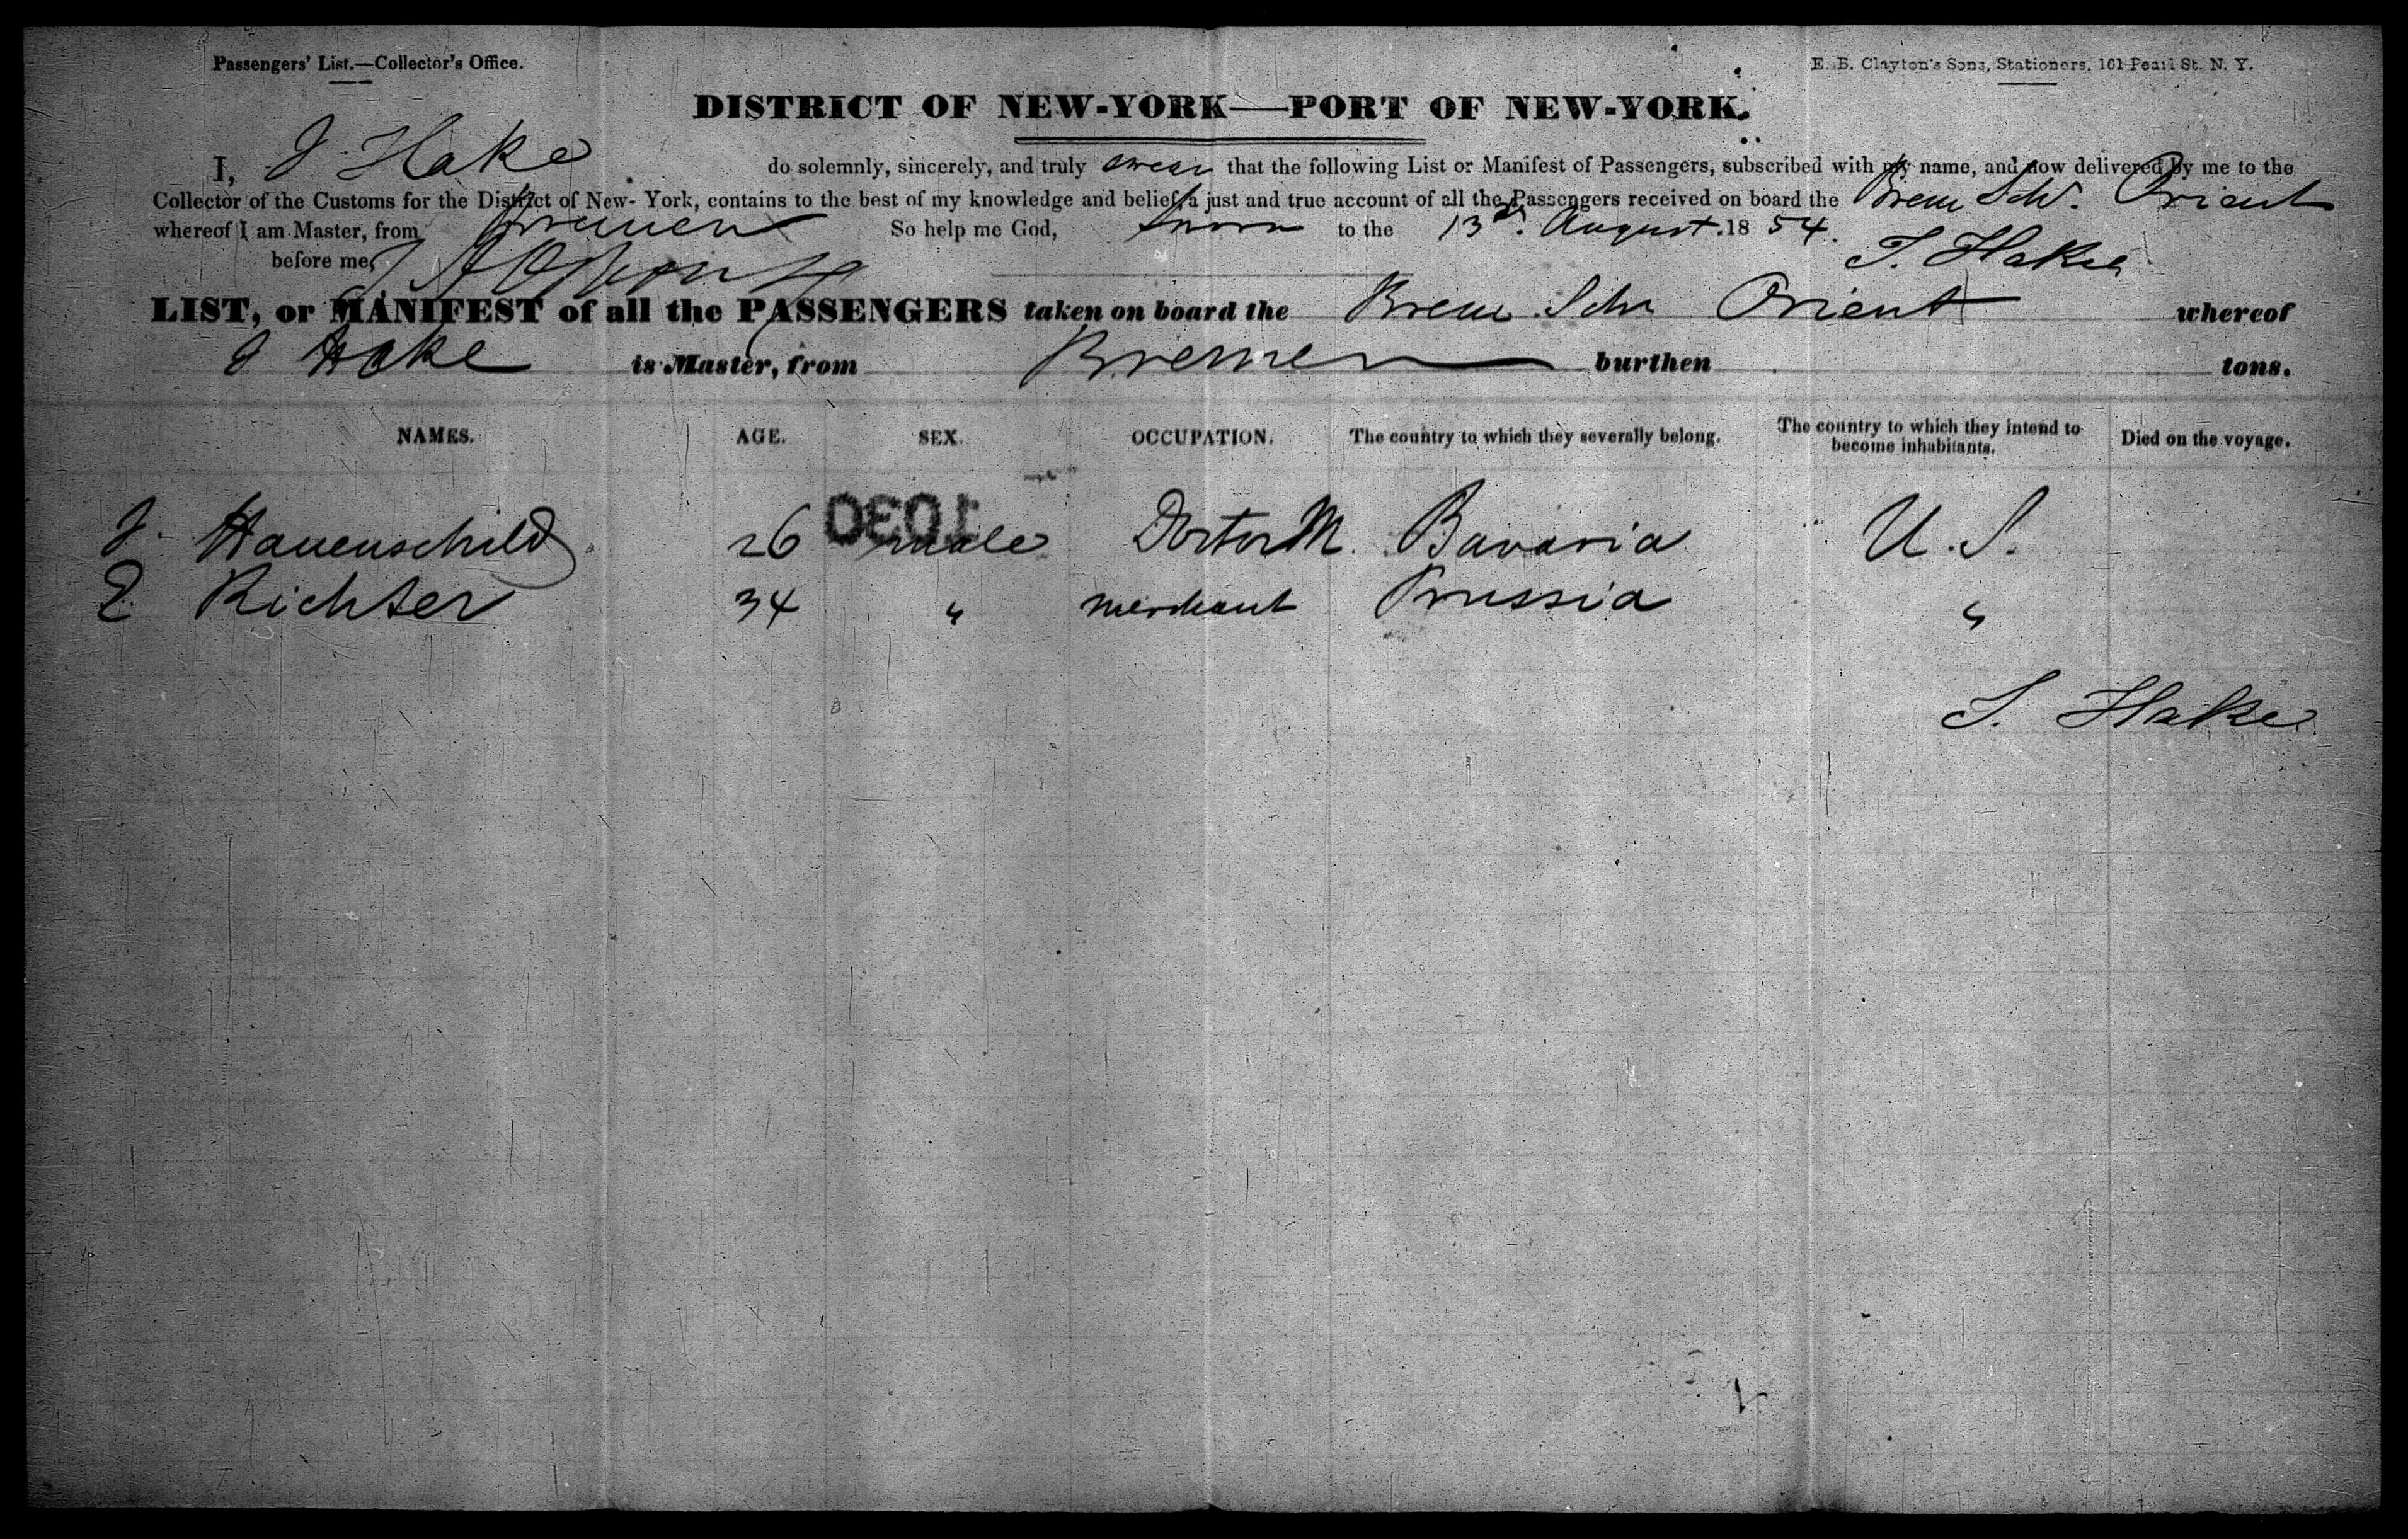 Passengers' List.—Collector's Office.
E. B. Clayton's Sons, Stationers, 161 Pearl St. N. Y.
DISTRICT OF NEW-YORK—PORT OF NEW-YORK.
I, J Hake do solemnly, sincerely, and truly swear that the following List or Manifest of Passengers, subscribed with my name, and now delivered by me to the
Collector of the Customs for the District of New-York, contains to the best of my knowledge and belief, a just and true account of all the Passengers received on board the Brem Sch. Orient
whereof I am Master, from Bremen So help me God, Sworn to the 13th. August. 1854.
before me, J. Hake
LIST, or MANIFEST of all the PASSENGERS taken on board the Brem Schr Orient whereof
J Hake is Master, from Bremen burthen tons.
NAMES. AGE. SEX. OCCUPATION. The country to which they severally belong. The country to which they intend to become inhabitants. Died on the voyage.
1030
J. Hauenschild 26 male Doctor M. Bavaria U. S.
E Richter 34 " merchant Prussia "
J. Hake